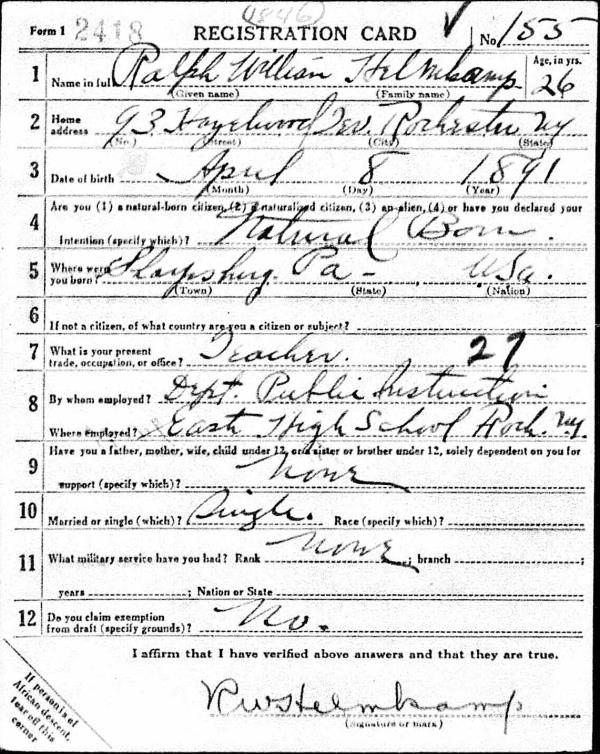 (1846)
Form 1 2418 REGISTRATION CARD No. 155
1 Name in full Ralph William Helmkamp Age, in yrs. 26
(Given name) (Family name)
2 Home address 93 Hazelwood Ter. Rochester NY
(No.) (Street) (City) (State)
3 Date of birth April 8 1891
(Month) (Day) (Year)
4 Are you (1) a natural-born citizen, (2) a naturalized citizen, (3) an alien, (4) or have you declared your
intention (specify which)? Natural Born.
5 Where were you born? Pa - U.S.a.
(Town) (State) (Nation)
6 If not a citizen, of what country are you a citizen or subject?
7 What is your present trade, occupation, or office? Teacher. 27
8 By whom employed? Dept. Public Instruction
Where employed? East High School Roch. N.Y.
9 Have you a father, mother, wife, child under 12, or a sister or brother under 12, solely dependent on you for
support (specify which)? None
10 Married or single (which)? Single. Race (specify which)?
11 What military service have you had? Rank None; branch ;
years ; Nation or State
12 Do you claim exemption from draft (specify grounds)? No.
I affirm that I have verified above answers and that they are true.
R W Helmkamp
(Signature or mark)
If person is of
African descent,
tear off this
corner